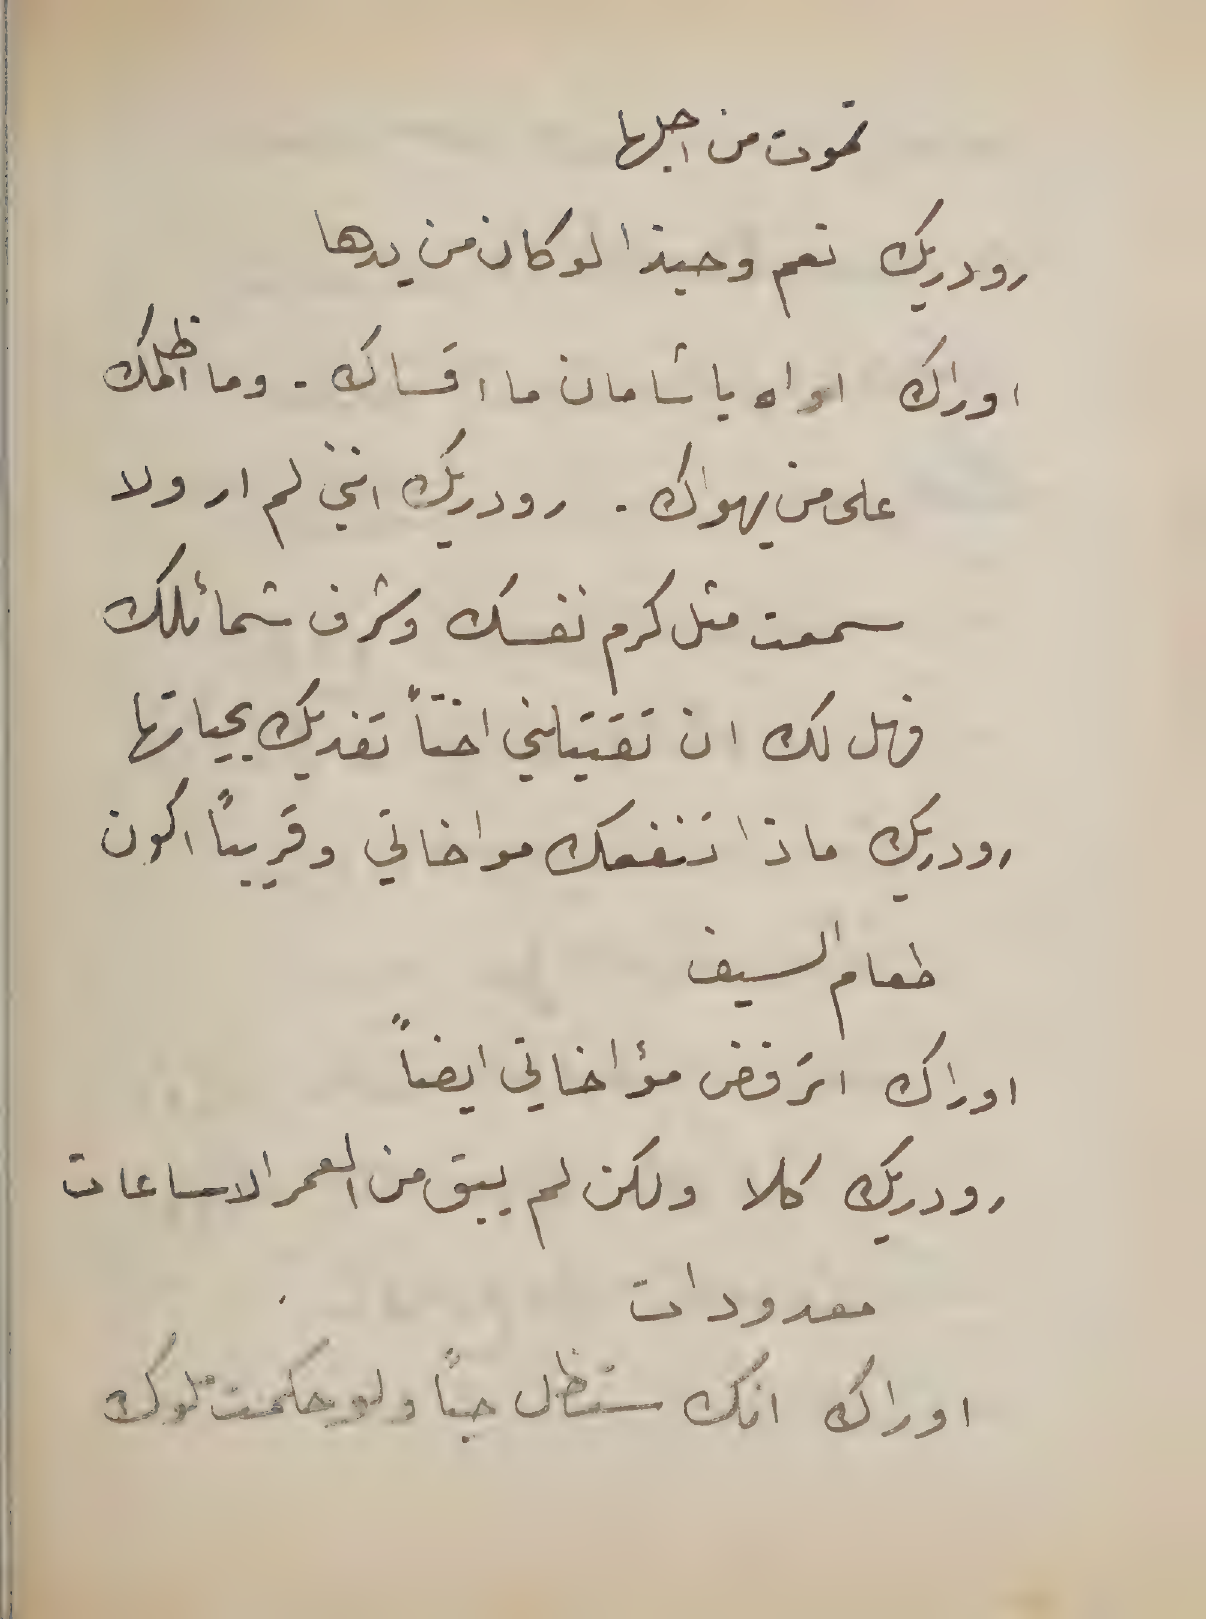 تموت من اجلها
رودريك نعم وحبذا لو كان من يدها
اوراك اواه يا شامان ما اقساك . وما اظلمك
على من يهواك . رودريك انني لم ار ولا
سمعت مثل كرم نفسك وشرف شمائلك
فهل لك ان تقتبلني اختاً تفديك بحياتها
رودريك ماذا تنفعك مواخاتي وقريباً اكون
طعام السيف
اوراك اترفض مؤاخاتي ايضاً
رودريك كلا ولكن لم يبق من العمر الا ساعات
معدودات
اوراك انك ستظل حياً ولو حكمت ملوك